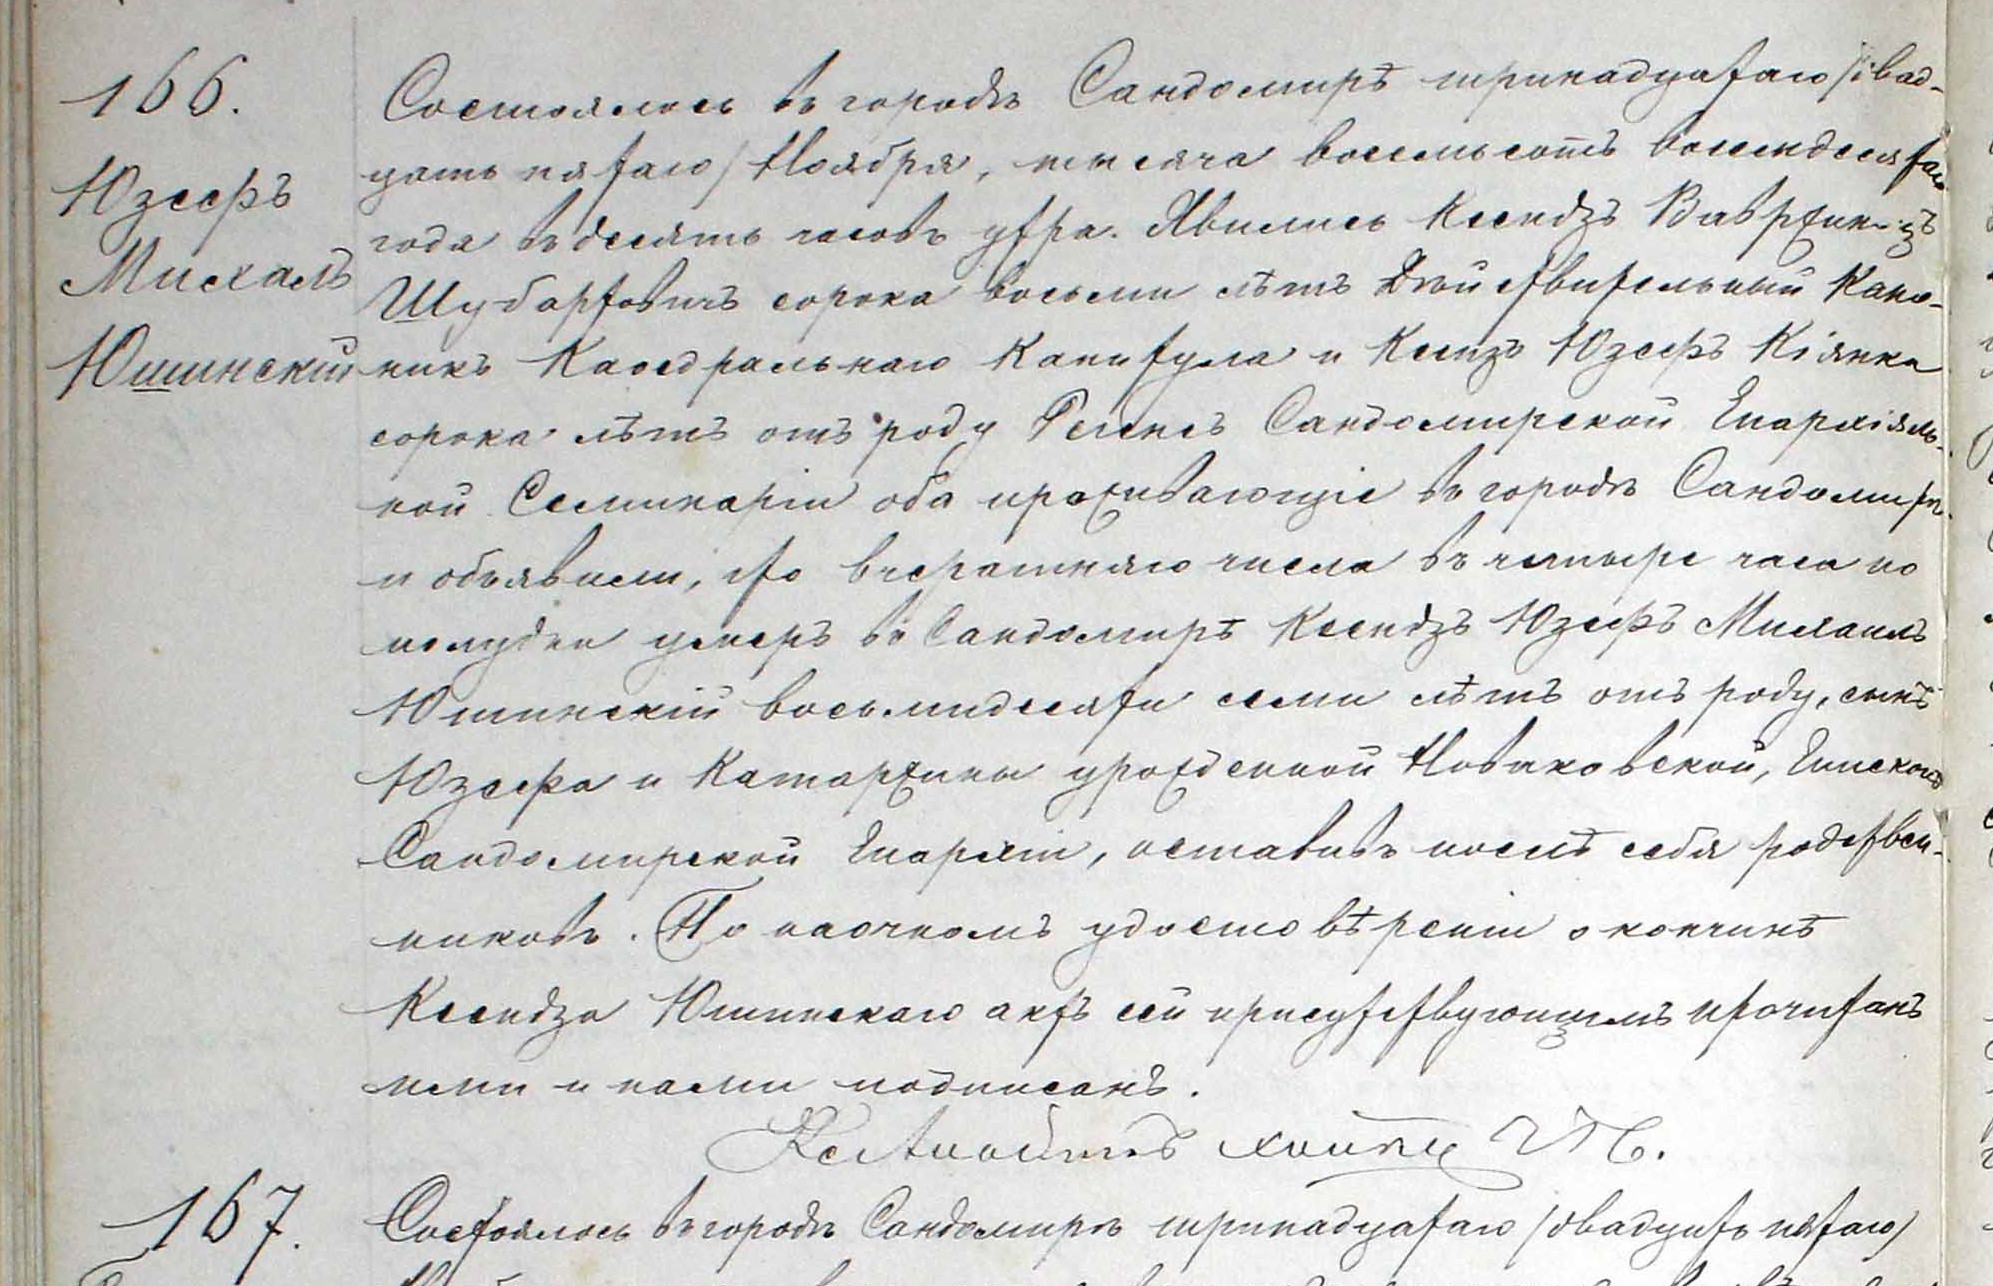 166.
Юзефъ
Михалъ
Юшинскій
Состоялось въ городѣ Сандомирѣ тринадцатаго /двад-
цать пятаго/ Ноября, тысяча восемьсотъ восемдесятаго
года въ десять часовъ утра. Явились Ксендзъ Вавржинецъ
Шубартовичъ сорока восьми лѣтъ Дѣйствительный Кано-
никъ Каѳедральнаго Капитула и Ксендзъ Юзефъ Кіянка
сорока лѣтъ отъ роду Регенсъ Сандомирской Епархіяль-
ной Семинаріи оба проживающіе въ городѣ Сандомирѣ
и объявили, что вчерашняго числа въ четыре часа по
полудни умеръ въ Сандомирѣ Ксендзъ Юзефъ Михаилъ
Юшинскій восьмидесяти семи лѣтъ отъ роду, сынъ
Юзефа и Катаржины урожденной Новаковской, Епископъ
Сандомирской Епархіи, оставивъ послѣ себя родствен-
никовъ. По наочномъ удостовѣреніи о кончинѣ
Ксендза Юшинскаго актъ сей присутствующимъ прочитанъ
ими и нами подписанъ.
167.
Состоялось въ городѣ Сандомирѣ тринадцатаго /двадцать пятаго/